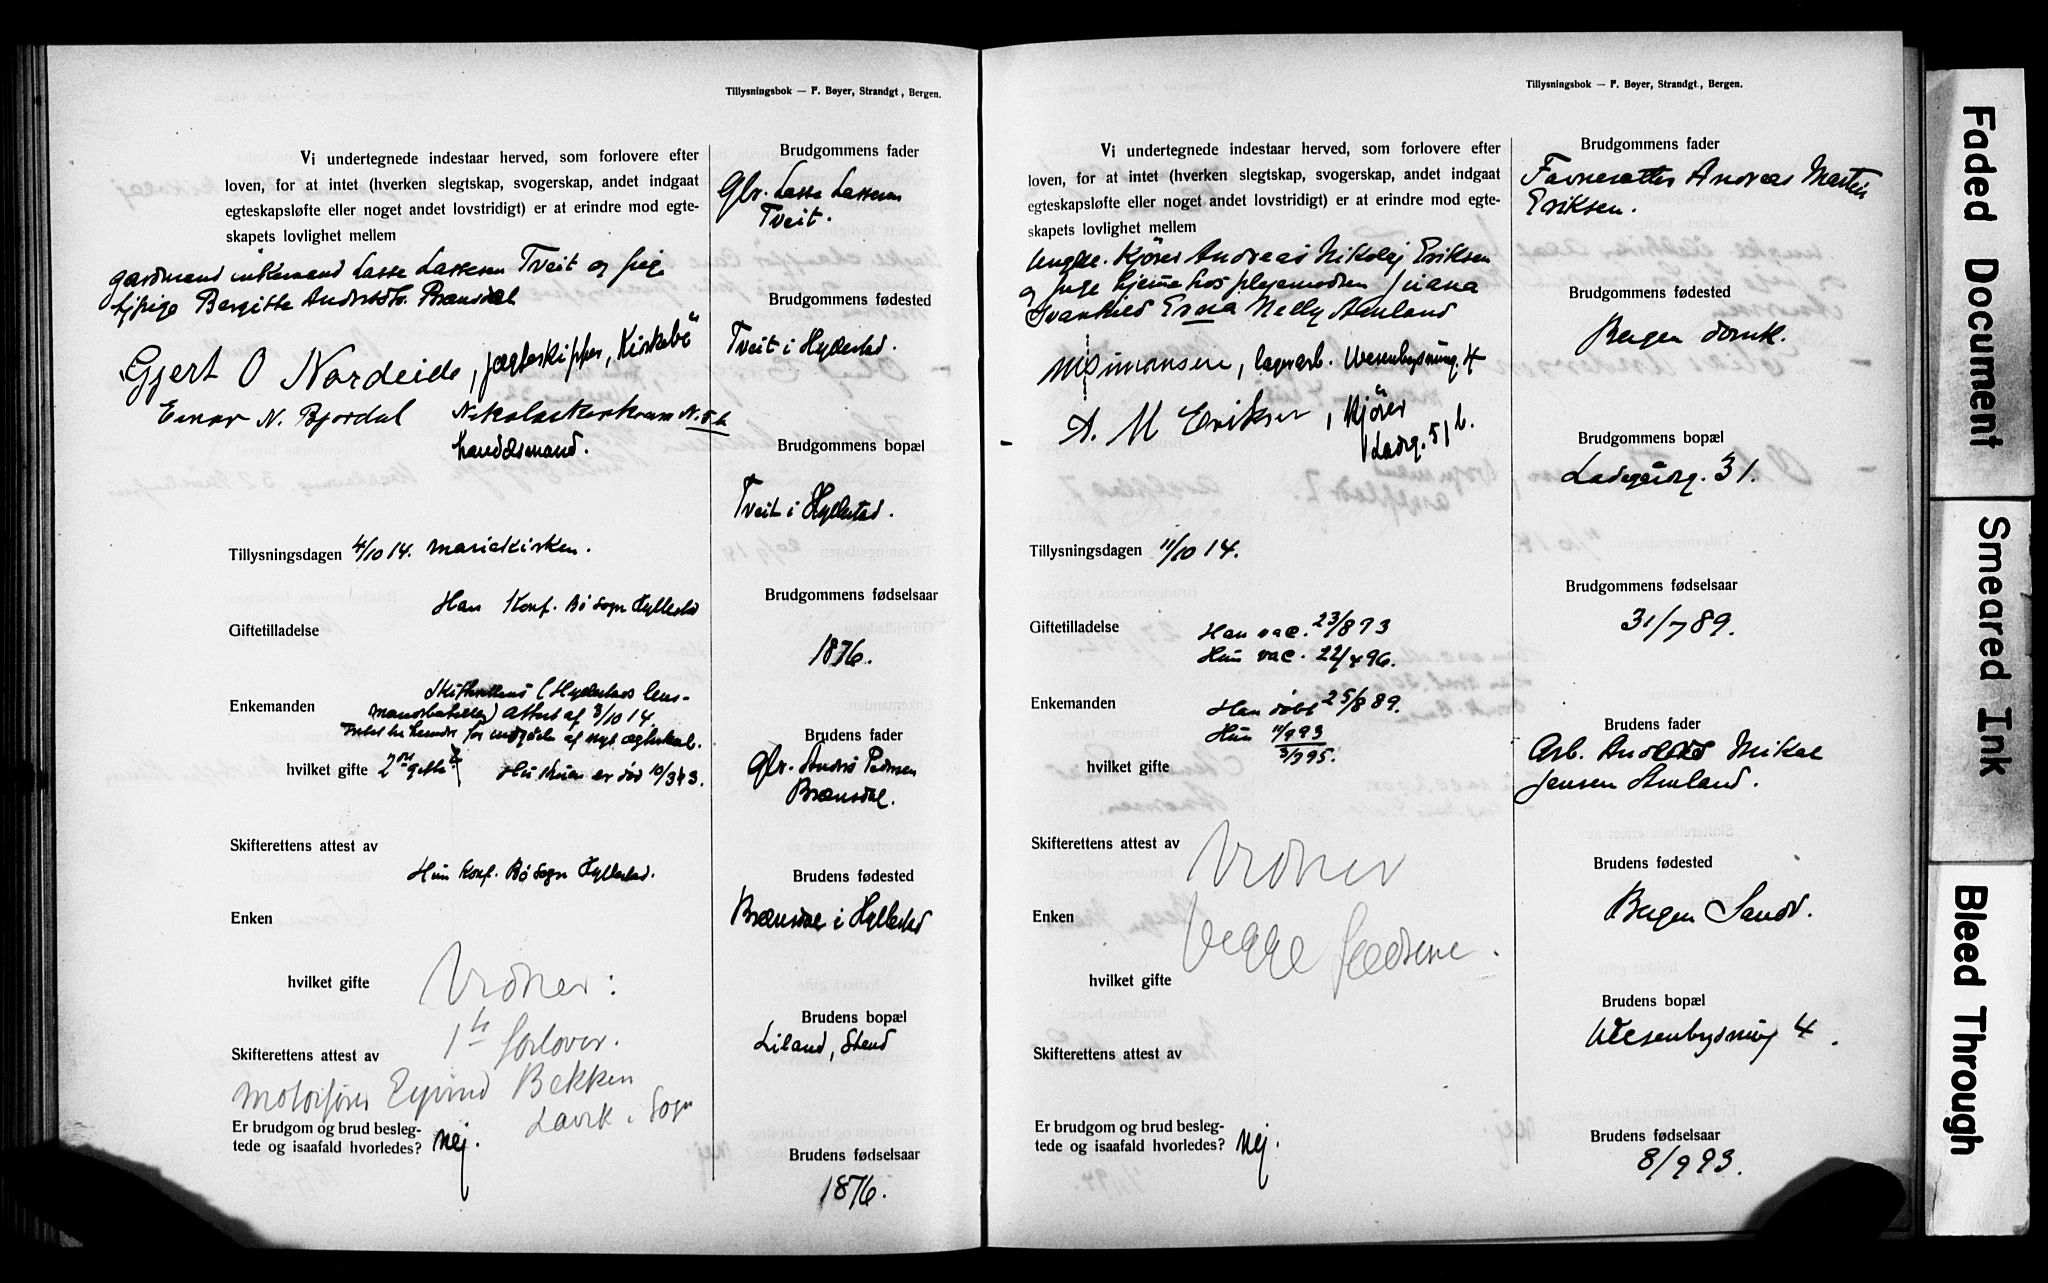 Tillysningsbok — F. Bøyer, Strandgt., Bergen.
Vi undertegnede indestaar herved, som forlovere efter
loven, for at intet (hverken slegtskap, svogerskap, andet indgaat
egteskapsløfte eller noget andet lovstridigt) er at erindre mod egte-
skapets lovlighet mellem
gardmand enkemand Lasse Lassesen Tveit og pige
Bergitte Brænsdal
Gjert O Nordeide, jægteskipper, Kirkebö
Einar N. Bjordal
handelsmand.
Tillysningsdagen 4/10 14. Mariekirken.
Han Konf. Bö sogn Hyllestad
Giftetilladelse
Skifterettens (Hyllestads lens-
Enkemanden attest af 3/10 14
hvilket gifte 2det gifte
Skifterettens attest av
Hun Konf. Bö sogn Hyllestad.
Enken
hvilket gifte
Vidner:
1ste forlover.
Skifterettens attest av
Motorfører Eyvind Bekken
Lavik i Sogn
Er brudgom og brud besleg-
tede og isaafald hvorledes? Nej.
Brudgommens fader
Gbr. Lasse Lassesen
Tveit.
Brudgommens fødested
Tveit i Hyllestad.
Brudgommens bopæl
Tveit i Hyllestad.
Brudgommens fødselsaar
1876.
Brudens fader
Gbr. Anders Pedersen
Brænsdal.
Brudens fødested
Brænsdal i Hyllestad
Brudens bopæl
Liland, Stend
Brudens fødselsaar
1876.
Tillysningsbok — F. Bøyer, Strandgt., Bergen.
Vi undertegnede indestaar herved, som forlovere efter
loven, for at intet (hverken slegtskap, svogerskap, andet indgaat
egteskapsløfte eller noget andet lovstridigt) er at erindre mod egte-
skapets lovlighet mellem
Ungk. Kjører Andreas Nikolej Eriksen
og pige hjemme hos plejemodren
Svanhild Erna Nelly Amland
M Simonsen, lagerarb. Wesenbygning. 4
A. M Eriksen, Kjører
Ladg. 51 b.
Tillysningsdagen 11/10 14.
Giftetilladelse Han vac. 23/8 93
Hun vac. 22/4 96.
Enkemanden Han döbt 25/8 89.
Hun
3/3 95.
hvilket gifte
Skifterettens attest av
Vidner
Enken
begge fædrene.
hvilket gifte
Skifterettens attest av
Er brudgom og brud besleg-
tede og isaafald hvorledes? Nej.
Brudgommens fader
Favnesætter Andreas Martin
Eriksen.
Brudgommens fødested
Bergen domk.
Brudgommens bopæl
Ladegårdsg. 31.
Brudgommens fødselsaar
31/7 89.
Brudens fader
Arb. Mikal
Jensen Amland.
Brudens fødested
Bergen Sandv.
Brudens bopæl
Wesenbygning 4.
Brudens fødselsaar
8/9 93.
Faded Document
Smeared Ink
Bleed Through